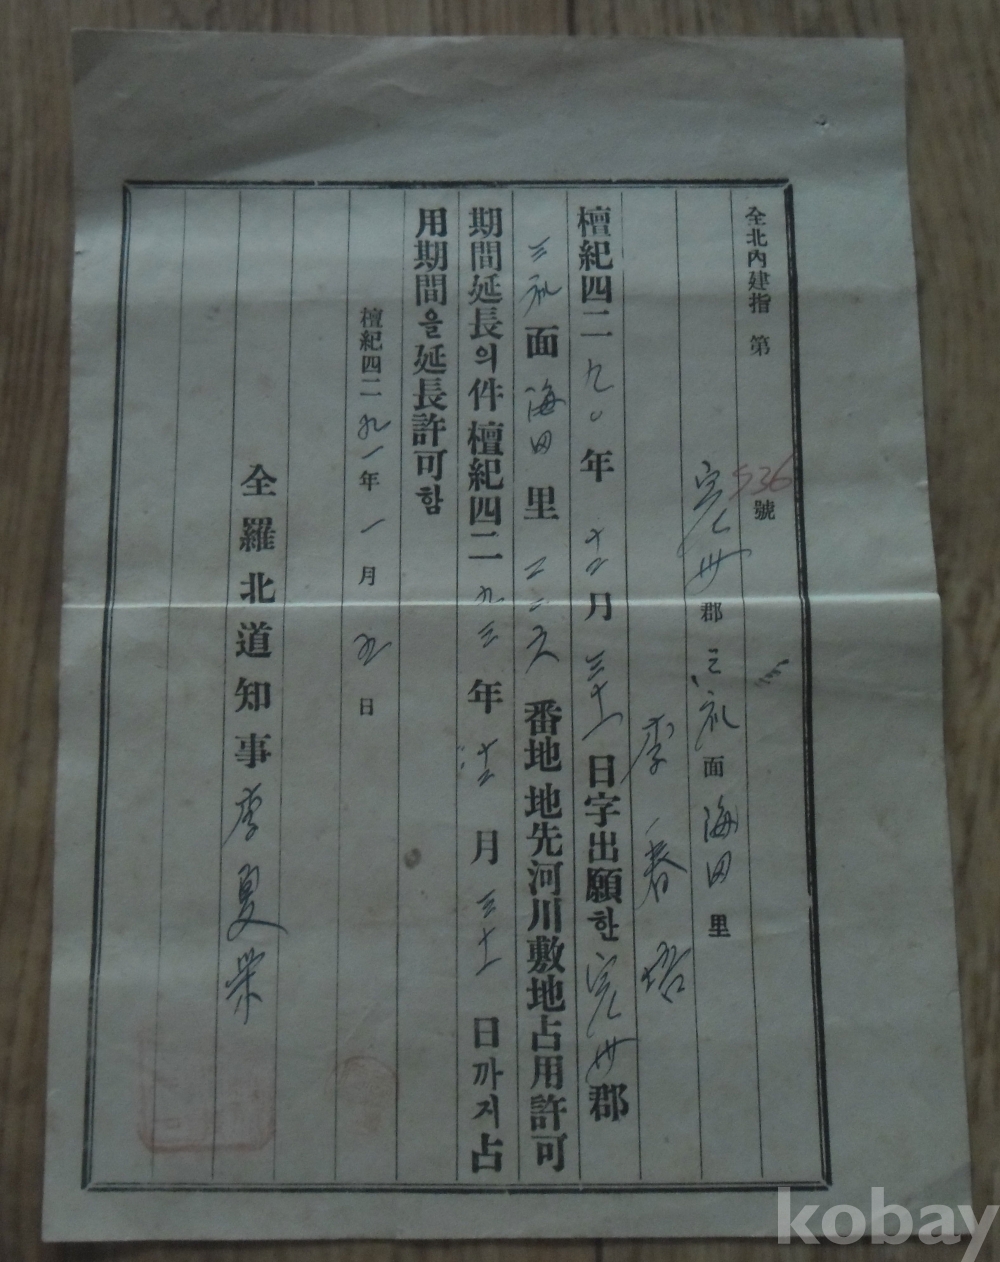 全北內建指 第 536 號
完州郡 三礼面 海田里
李春塔
檀紀四二九〇年 十二月 三十一日字出願한 完州郡
三礼面 海田里 二二六番地 地先河川敷地占用許可
期間延長의件 檀紀四二九三年 十二月 三十一日까지占
用期間을延長許可함
檀紀四二九一年 一月 九日
全羅北道知事 李夏榮
kobay